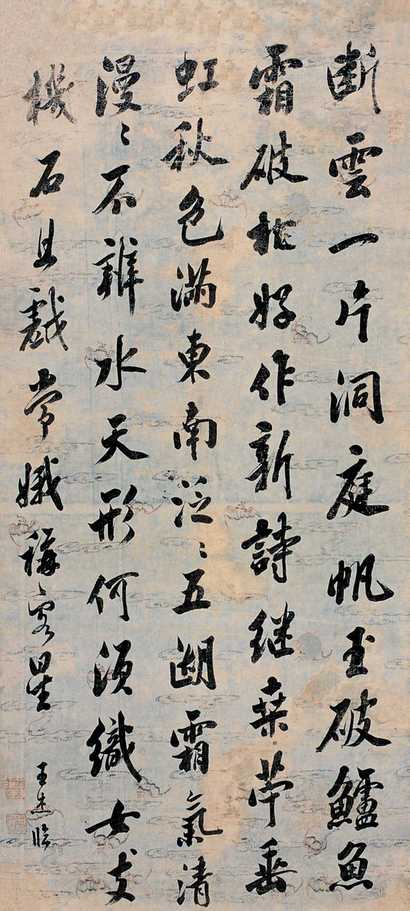 斷雲一片洞庭帆玉破鱸魚
霜破柑好作新詩继桑苧垂
虹秋色滿東南泛〻五湖霜氣清
漫〻不辨水天形何須織女支
機石且戲常娥稱客星
王杰臨